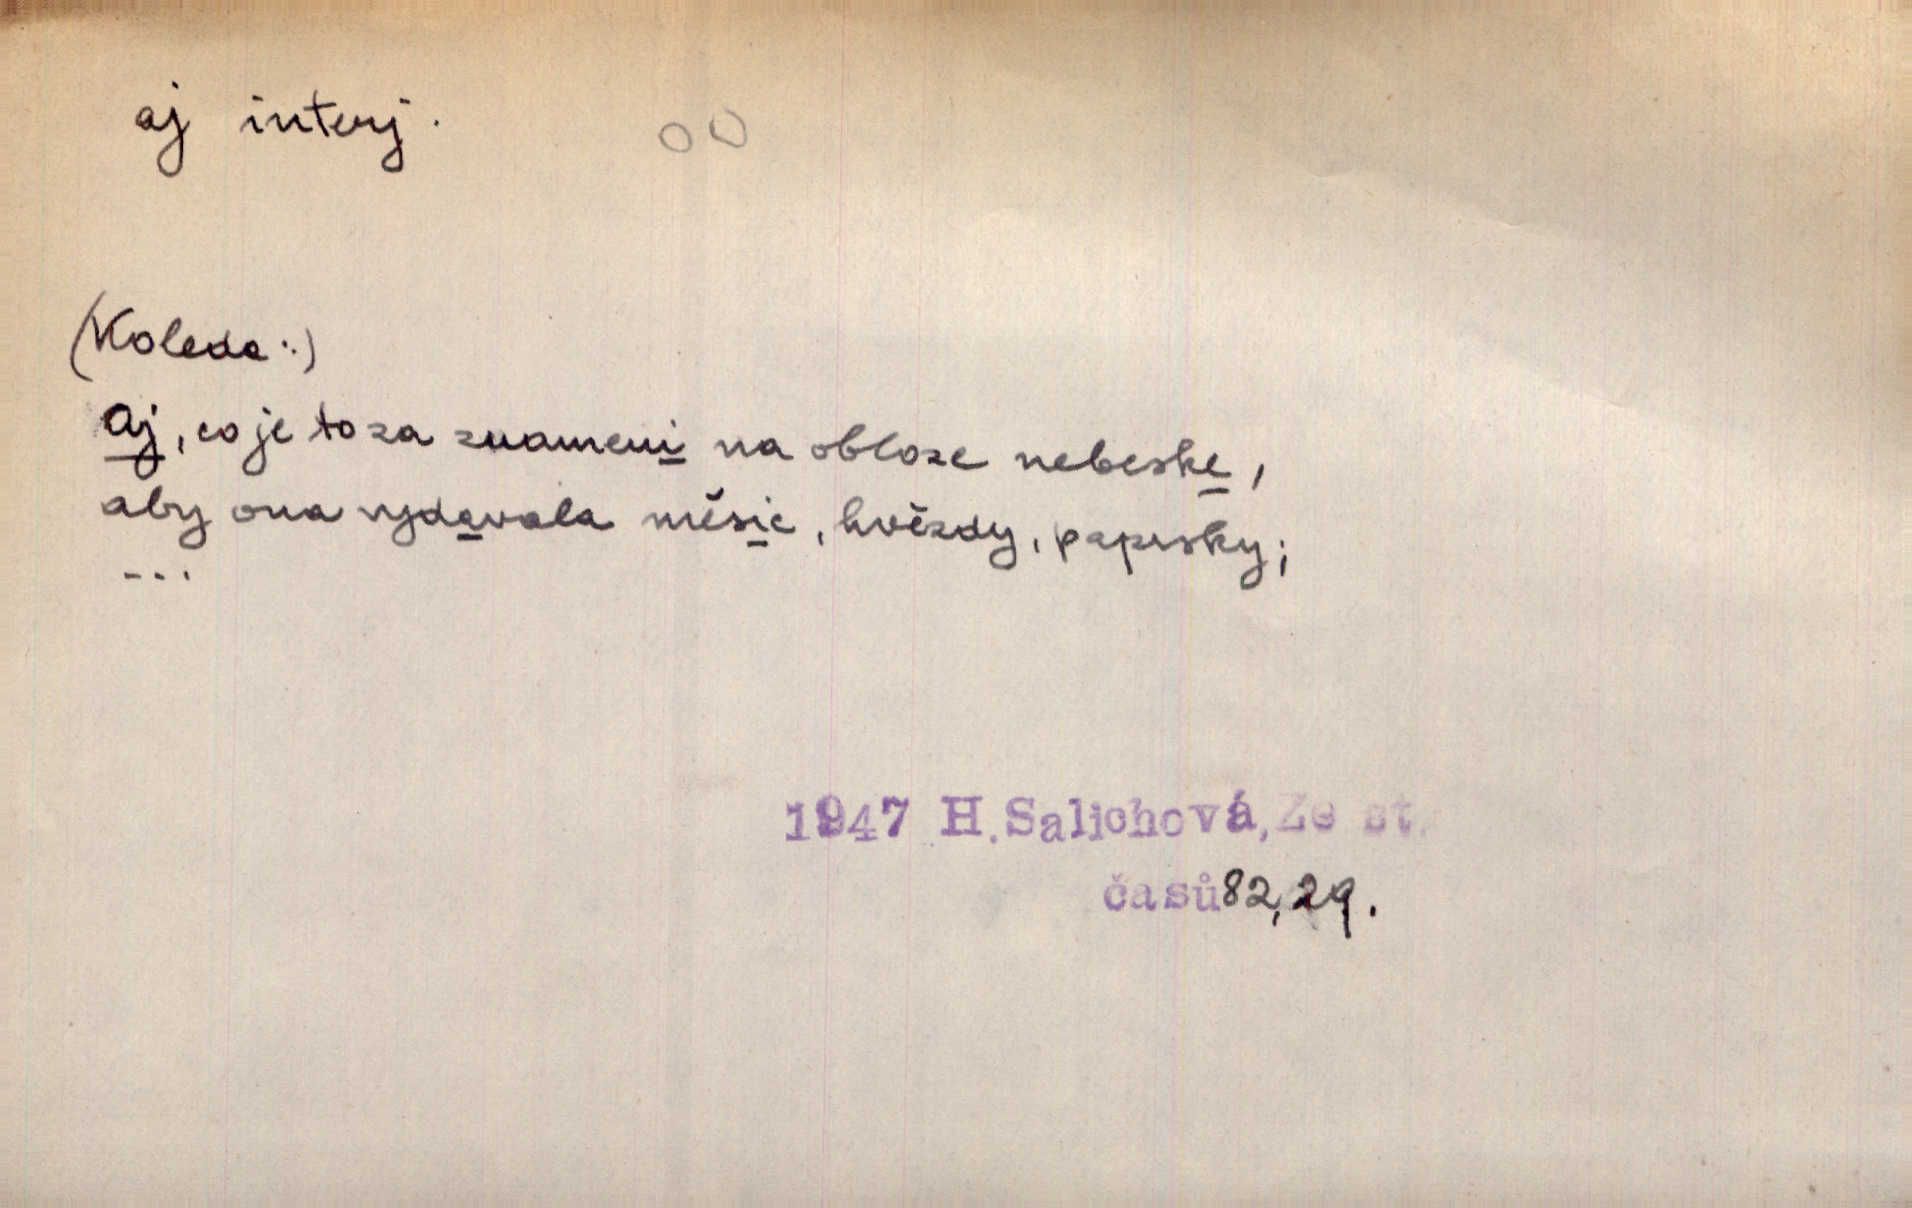 aj interj.
OO
(Koleda:)
Aj, co je to za znameni na obloze nebeske,
aby ona vydavala měsic, hvězdy, paprsky;
...
1947 H.Salichová,Ze st.
časů82,29.